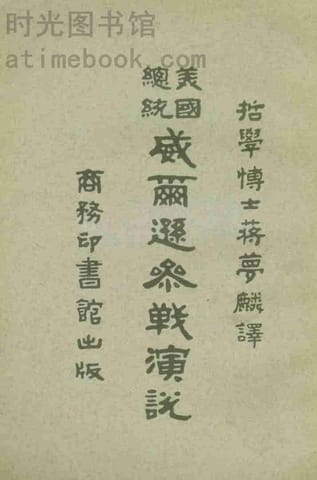 时光图书馆
atimebook.com
哲學博士蔣夢麟譯
美國總統
威爾遜參戰演說
商務印書館出版